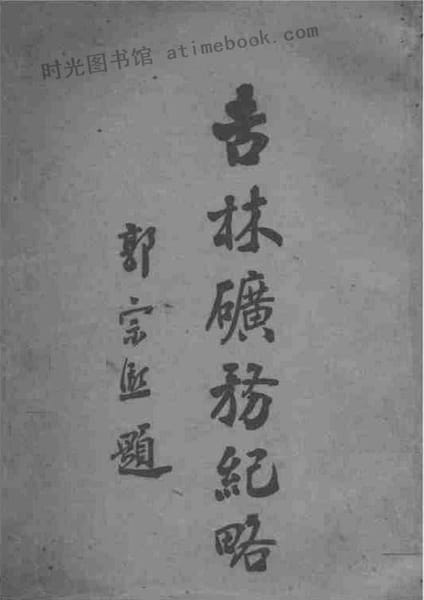 时光图书馆 atimebook.com
吉林礦務紀略
郭宗熙題